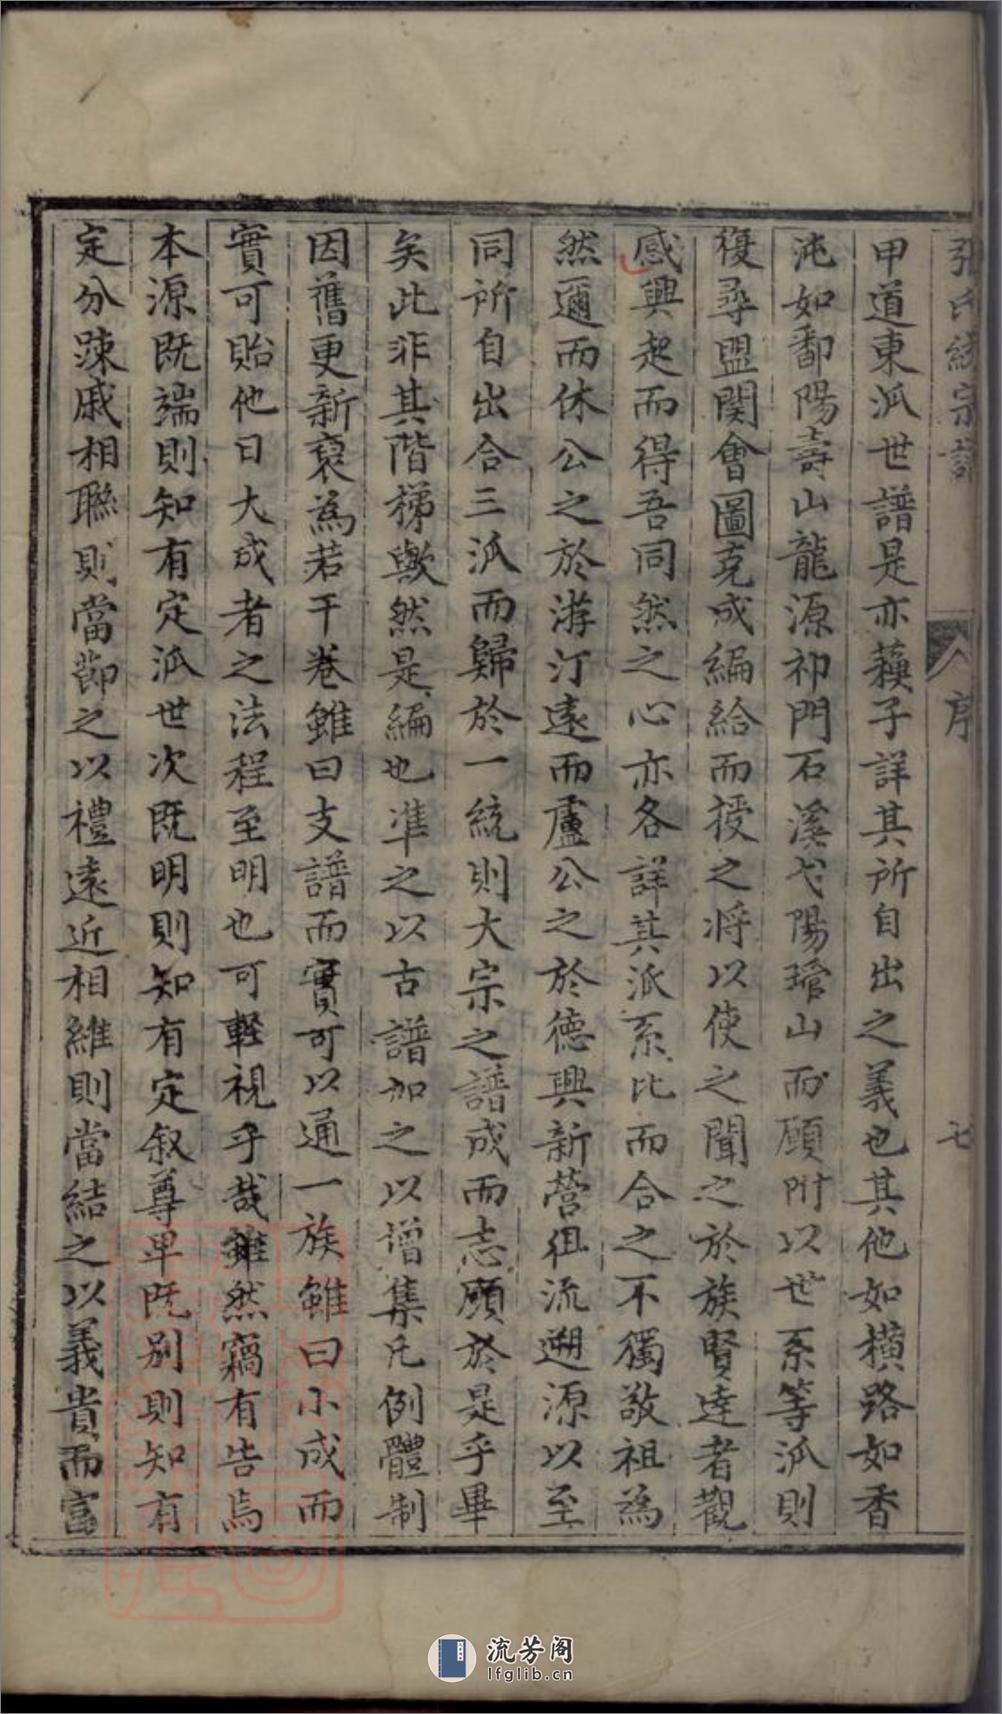 張氏統宗譜
序
七
甲道東派世譜是亦蘓子詳其所自出之義也其他如橫路如香
沌如鄱陽壽山龍源祁門石溪弋陽琯山而願附以世系等派則
復尋盟関會圖克成編給而授之將以使之聞之於族賢達者觀
感興起而得吾同然之心亦各詳其派系比而合之不獨敬祖為
然邇而休公之於游汀遠而廬公之於德興新營徂流遡源以至
同所自出合三派而歸於一統則大宗之譜成而志願於是乎畢
矣此非其階梯歟然是編也準之以古譜加之以增集凡例體制
因舊更新裒為若干卷雖曰支譜而實可以通一族雖曰小成而
實可貽他日大成者之法程至明也可輕視乎哉雖然竊有告焉
本源既端則知有定派世次既明則知有定叙尊卑既别則知有
定分踈戚相聮則當節之以禮遠近相維則當結之以義貴而富
流芳阁
lfglib.cn